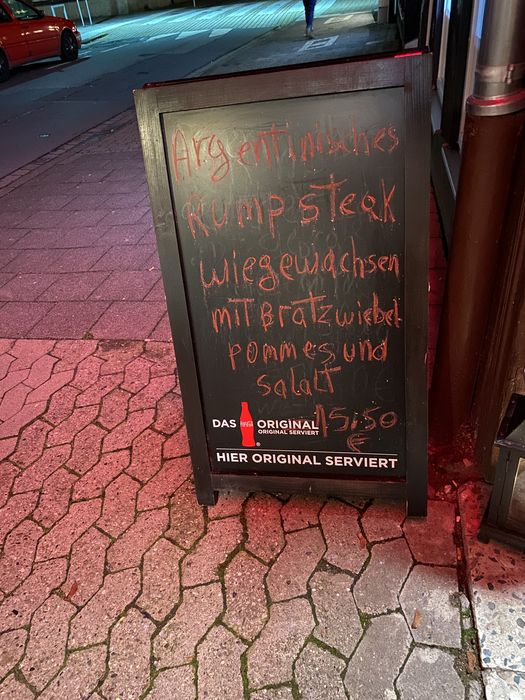 Argentinisches
Rumpsteak
wiegewachsen
mit Bratzwiebel
pommes und
salalt
15,50
€
DAS Coca-Cola ORIGINAL
ORIGINAL SERVIERT
HIER ORIGINAL SERVIERT